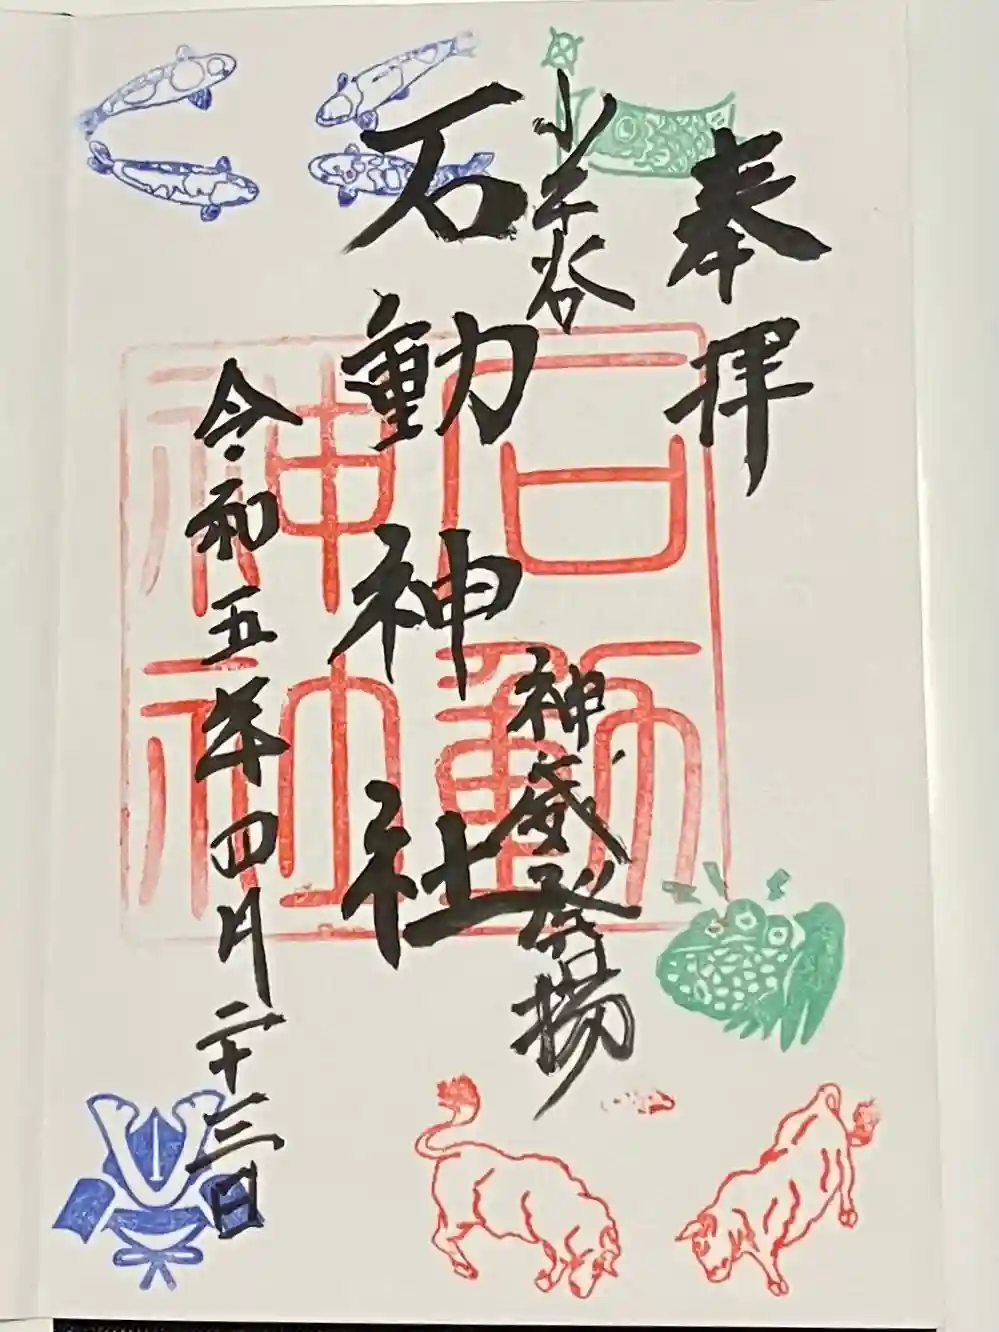 奉拝
小千谷
神威発揚
石動神社
石動神社
令和五年四月二十三日